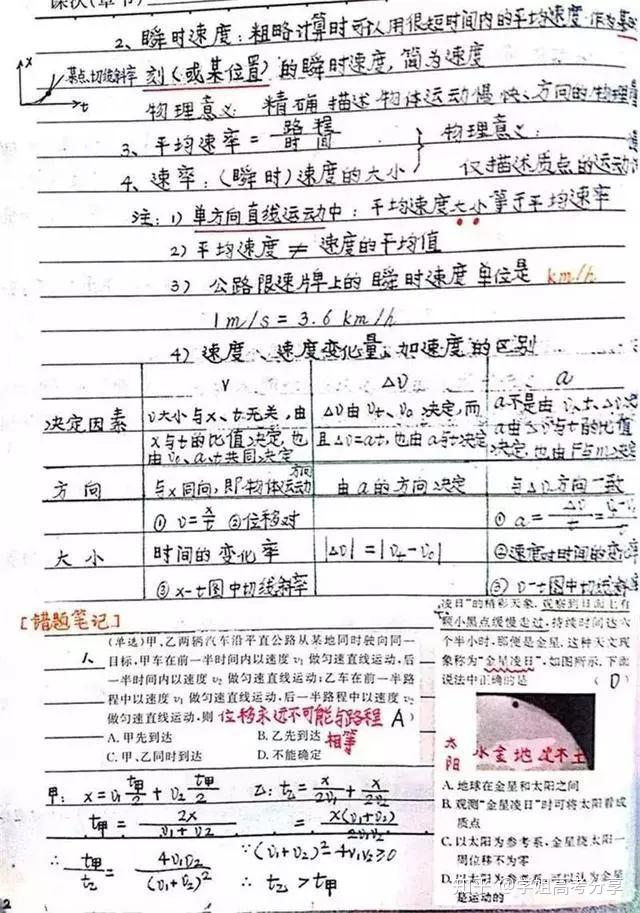 课次(章节)
2、瞬时速度：粗略计算时可认用很短时间内的平均速度作为某
x
某点切线斜率
t
刻(或某位置)的瞬时速度，简为速度
物理意义：精确描述物体运动慢快、方向的物理
3、平均速率 = 路程/时间 物理意义：
4、速率：(瞬时)速度的大小 仅描述质点的运动
注：1) 单方向直线运动中：平均速度大小等于平均速率
2) 平均速度 ≠ 速度的平均值
3) 公路限速牌上的瞬时速度单位是 km/h
1m/s = 3.6 km/h
4) 速度、速度变化量、加速度的区别
v Δv a
决定因素
v大小与x、t无关，由x与t的比值决定，也由v₀、a、t共同决定
Δv由vt、v₀决定，而且Δv=at，也由a与t决定
a不是由v、t、Δv决定 a由Δv与t的比值决定，也由F与m决定
方向
与x同向，即物体运动方向
由a的方向决定
与Δv方向一致
大小
① v=x/t ②位移对时间的变化率
③ x-t图中切线斜率
|Δv|=|vt-v₀|
① a=Δv/t
②速度对时间的变化率
③ v-t图中切线斜率
[错题笔记]
1、
(单选)甲、乙两辆汽车沿平直公路从某地同时驶向同一
目标，甲车在前一半时间内以速度 v₁ 做匀速直线运动，后
一半时间内以速度 v₂ 做匀速直线运动；乙车在前一半路
程中以速度 v₁ 做匀速直线运动，后一半路程中以速度 v₂
做匀速直线运动，则 位移永远不可能与路程 A )
A. 甲先到达 B. 乙先到达 相等
C. 甲、乙同时到达 D. 不能确定
甲：x=v₁ t甲/2 + v₂ t甲/2 乙：t乙= x/2v₁ + x/2v₂
t甲 = 2x/(v₁+v₂) = x(v₁+v₂)/2v₁v₂
∴ t甲/t乙 = 4v₁v₂/(v₁+v₂)² ∵(v₁+v₂)²-4v₁v₂≥0
∴ t乙 > t甲
凌日”的精彩天象，观察到日面上有
颗小黑点缓慢走过，持续时间达六
个半小时，那便是金星，这种天文现
象称为“金星凌日”，如图所示，下面
说法中正确的是 ( D )
太阳 水金地 火木土
A. 地球在金星和太阳之间
B. 观测“金星凌日”时可将太阳看成
质点
C. 以太阳为参考系，金星绕太阳一
周位移不为零
D. 以太阳为参考系，可以认为金星
是运动的
知乎 @学姐高考分享
2